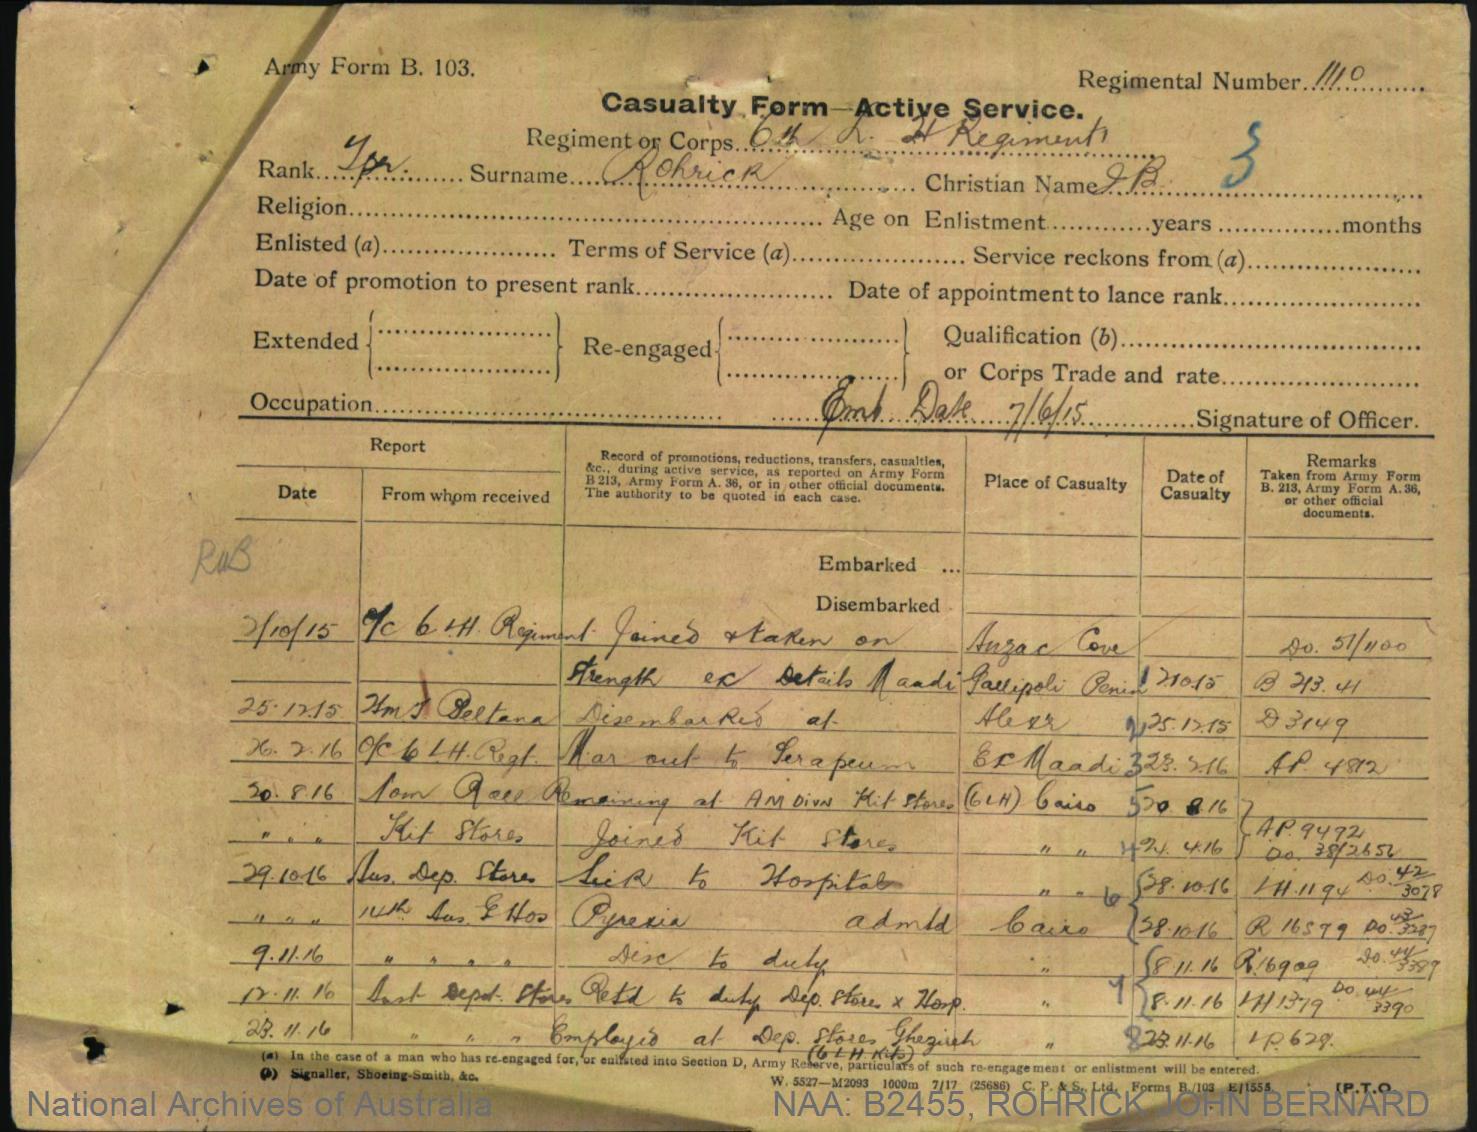 Army Form B. 103.
Regimental Number 1110
Casualty Form—Active Service.
Regiment or Corps 6th L. H Regiment
3
Rank Tpr. Surname Rohrick Christian Name J B
Religion Age on Enlistment years months
Enlisted (a) Terms of Service (a) Service reckons from (a)
Date of promotion to present rank Date of appointment to lance rank
Extended Re-engaged Qualification (b)
or Corps Trade and rate
Occupation Emb Date 7/6/15 Signature of Officer.
Report
Date From whom received
Record of promotions, reductions, transfers, casualties,
&c., during active service, as reported on Army Form
B 213, Army Form A. 36, or in other official documents.
The authority to be quoted in each case.
Place of Casualty
Date of
Casualty
Remarks
Taken from Army Form
B. 213, Army Form A. 36,
or other official
documents.
Embarked ...
Disembarked
2/10/15 O/C 6 L.H. Regiment Joined & taken on Anzac Cove Do. 51/1100
Strength ex Details Maadi Gallipoli Penin 1 2.10.15 B 213. 41
25.12.15 HMT Beltana Disembarked at Alexr 2 25.12.15 D 3149
26.2.16 O/C 6 L.H. Regt. Mar out to Serapeum Ex Maadi 3 23.2.16 AP. 4812
20.8.16 Remaining at AM Divn Kit Stores (6 LH) Cairo 5 20 8 16
" " " Kit Stores Joined Kit Stores " " 4 24.4.16 AP. 9472
Do. 38/2656
29.10.16 Aus. Dep. Stores Sick to Hospital " " 6 28.10.16 LH.1194 Do. 42/3078
" " " 14th Aus G Hos Pyrexia admtd Cairo 28.10.16 R 16579 Do. 43/3287
9.11.16 " " " " Disc to duty " 8.11.16 R.16909 Do. 44/3389
12.11.16 Aust Depot. Stores Retd to duty Dep. Stores x Hosp. " 7 8.11.16 LH1379 Do. 44/3390
23.11.16 " " " Employed at Dep. Stores Ghezireh " 8 23.11.16 LP.629.
(6 LH Kits)
(a) In the case of a man who has re-engaged for, or enlisted into Section D, Army Reserve, particulars of such re-engagement or enlistment will be entered.
(b) Signaller, Shoeing-Smith, &c.
W. 5527—M2093 1000m 7/17 (25686) C. P. & S., Ltd. Forms B./103 E/1555. [P.T.O.
National Archives of Australia
NAA: B2455, ROHRICK JOHN BERNARD